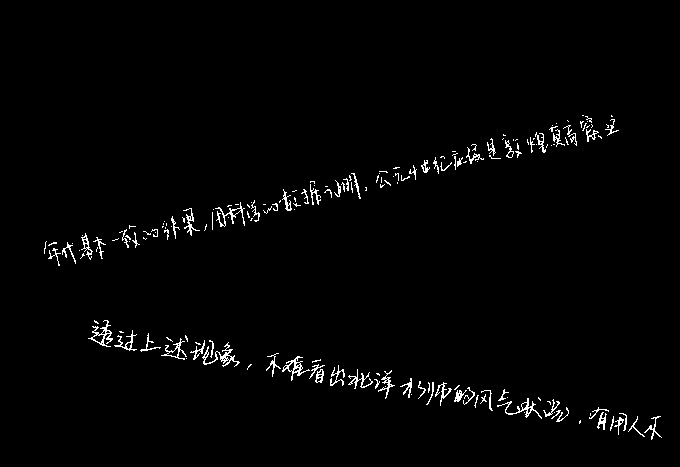 年代基本一致的结果,用科学的数据说明,公元4世纪应该是敦煌莫高窟这
透过上述现象,不难看出北洋水师的风气状况,有用人不